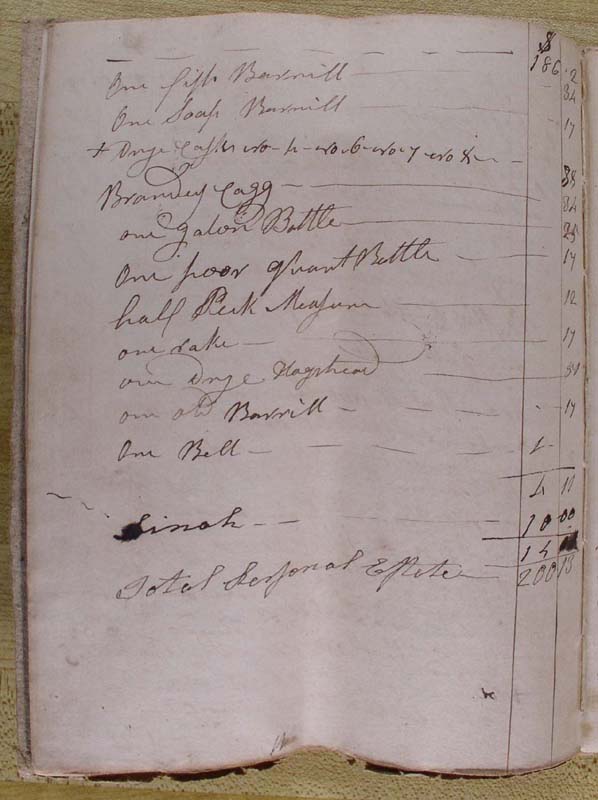 $
186
One fish Barrill — 34
One Soap Barrill — 17
Brandey Cagg —
one galon Bottle —
One poor quart Bottle — 17
half Peck Measure — 12
one rake — 17
one Hogshead —
one old Barrill — 17
One Bell — 1
4 11
Dinah — 10 00
14
Total Personal Estate — 200 13